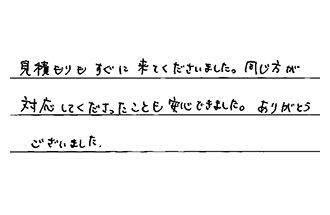 見積もりも すぐに 来てくださいました。同じ方が
対応してくださったことも安心できました。ありがとう
ございました.